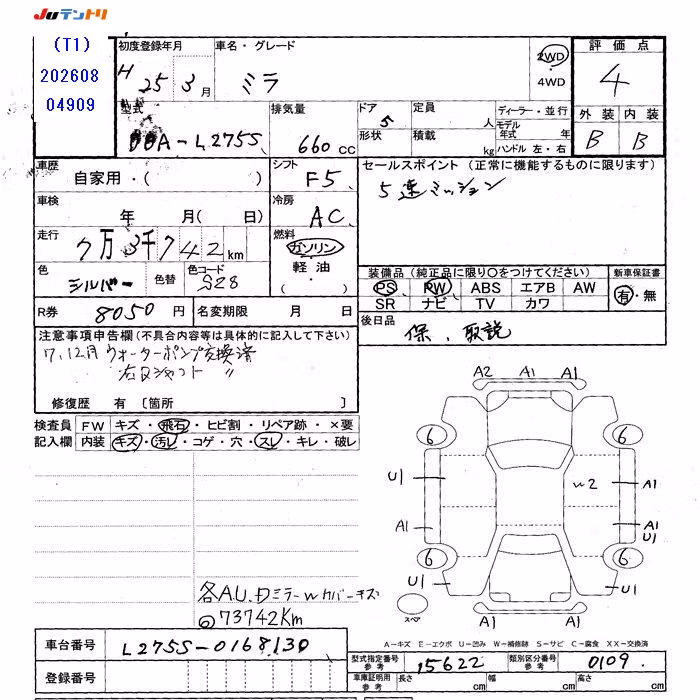 JUテントリ
(T1)
202608
04909
初度登録年月
H 25年 3月
車名・グレード
ミラ
2WD
4WD
評価点
4
型式
DBA-L275S
排気量
660 cc
ドア 5
形状
定員 人
積載 kg
ディーラー・並行
モデル年式 年
ハンドル 左・右
外装 内装
B B
車歴
自家用・( )
シフト
F5
セールスポイント (正常に機能するものに限ります)
5速ミッション
車検
年 月( 日)
冷房
AC
走行
7万3千742km
燃料
ガソリン
軽油
・( )
色
シルバー
色替
色コード
S28
装備品(純正品に限り○をつけてください)
PS PW ABS エアB AW
SR ナビ TV カワ
新車保証書
有・無
R券 8050円
名変期限 月 日
後日品
保、取説
注意事項申告欄(不具合内容等は具体的に記入して下さい)
7.12月 ウォーターポンプ交換済
右Dシャフト 〃
修復歴 有 [箇所 ]
検査員記入欄
FW キズ・飛石・ヒビ割・リペア跡・×要
内装 キズ・汚レ・コゲ・穴・スレ・キレ・破レ
A2 A1 A1
6 6
U1 W2 A1
A1 A1
U1
6 6
U1 U1
スペア
A1 A1
各A.U.
ミラーWカバーキズ
73742Km
車台番号 L275S-0168130
登録番号
A-キズ E-エクボ U-凹み W-補修跡 S-サビ C-腐食 XX-交換済
型式指定番号 参考 15622
類別区分番号 参考 0109
車庫証明用 参考 長さ cm 幅 cm 高さ cm